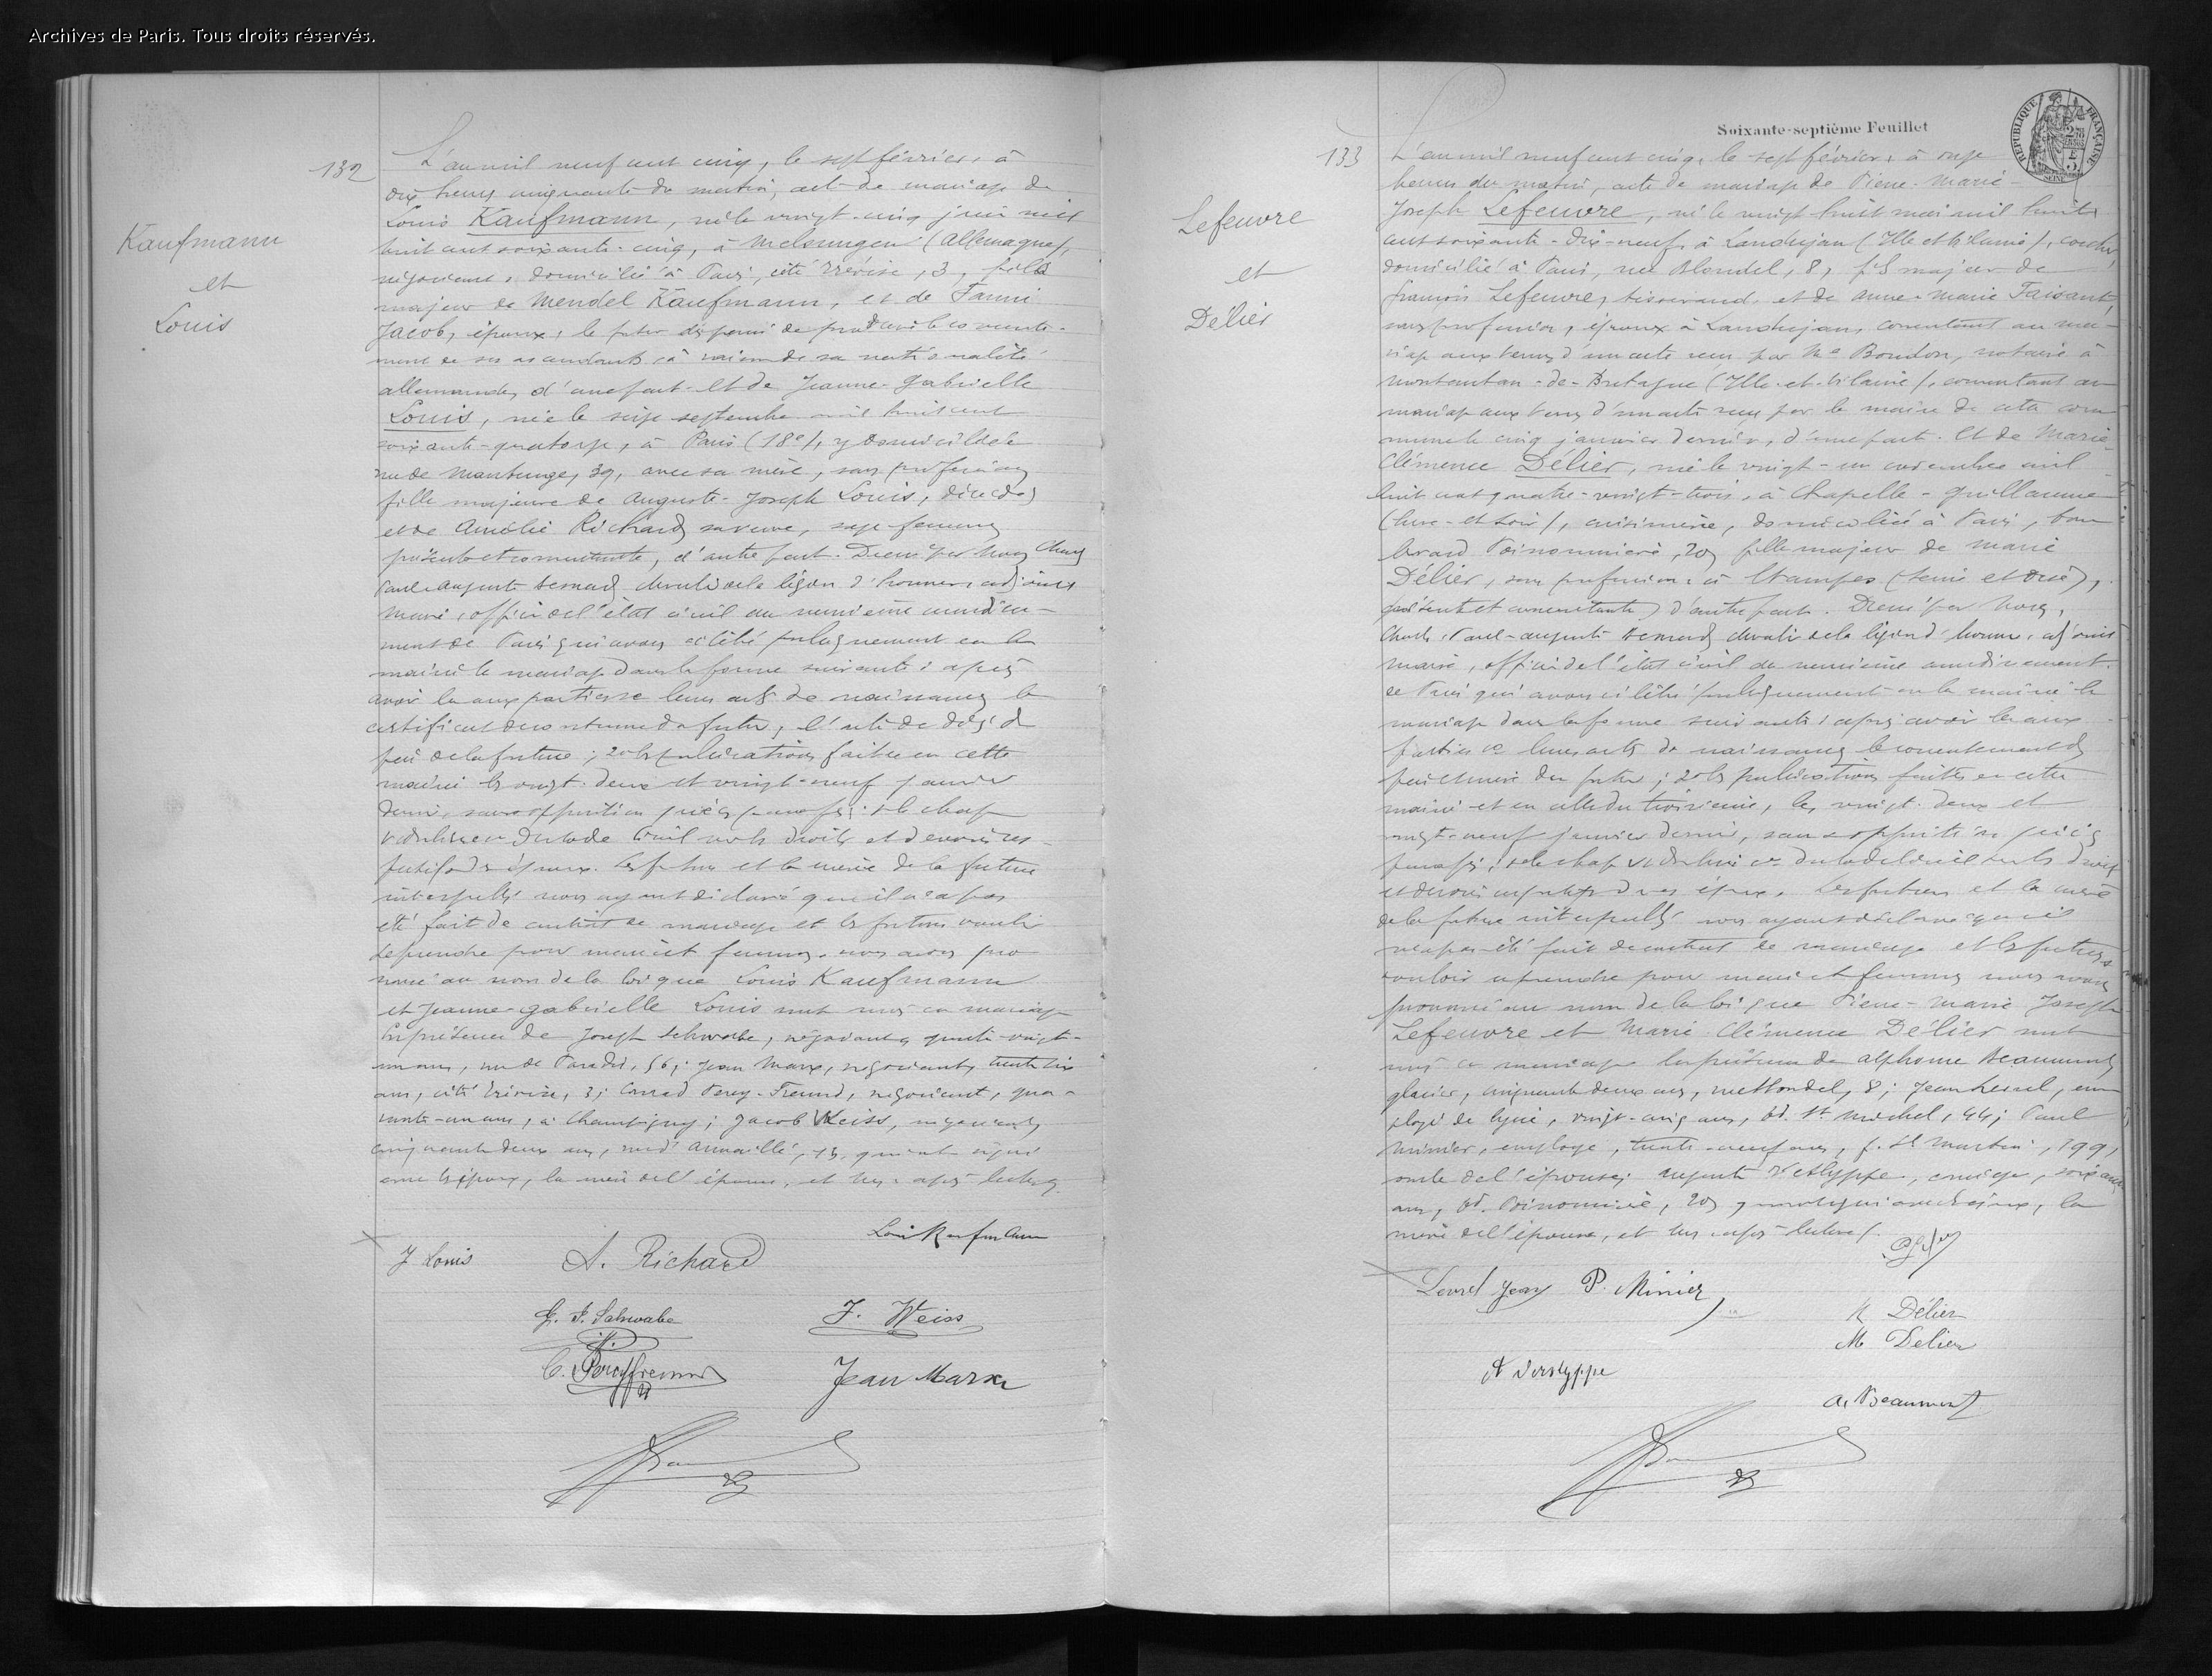 Archives de Paris. Tous droits réservés.
132
Kaufmann
et
Louis
L'an mil neuf cent cinq, le sept février, à
dix heures cinquante du matin, acte de mariage de
Louis Kaufmann, né le vingt-cinq juin mil
huit cent soixante-cinq, à Melsungen (Allemagne),
négociant, domicilié à Paris, cité Trévise, 3, fils
majeur de Mendel Kaufmann, et de Fanni
Jacob, époux, le futur dispensé de produire le consente-
ment de ses ascendants à raison de sa nationalité
allemande, d'une part. Et de Jeanne-Gabrielle
Louis, née le seize septembre mil huit cent
soixante-quatorze, à Paris (18e), y domiciliée
rue de Maubeuge, 39, avec sa mère, sans profession,
fille majeure de Auguste-Joseph Louis, décédé,
et de Amélie Richard sa veuve, sage-femme,
présente et consentante, d'autre part. Dressé par nous
Paul-Auguste Bernard, chevalier de la légion d'honneur, adjoint
maire, officier de l'état civil du neuvième arrondisse-
ment de Paris qui avons célébré publiquement en la
mairie le mariage dans la forme suivante: après
avoir lu aux parties 1° leurs actes de naissance, le
certificat de coutume du futur, l'acte de décès du
père de la future; 2° les publications faites en cette
mairie les vingt-deux et vingt-neuf janvier
dernier, sans opposition; 3° le chap
VI du livre 1er du Code Civil sur les droits et devoirs res-
pectifs des époux. Les futurs et la mère de la future
interpellés nous ayant déclaré qu'il n'a pas
été fait de contrat de mariage et les futurs vouloir
se prendre pour mari et femme, nous avons pro-
noncé au nom de la loi que Louis Kaufmann
et Jeanne-Gabrielle Louis sont unis en mariage
En présence de Joseph Schwabe, négociant, quatre-vingt-
un ans, rue de Paradis, 56; Jean Marx, négociant, trente
ans, cité Trévise, 3; Conrad Percy-Freund, négociant, qua-
rante-un ans, à Champigny; Jacob Weiss, négociant,
cinquante deux ans, rue d'Armaillé, 13, qui ont signé
avec les époux, la mère de l'épouse, et nous après lecture.
Louis Kaufmann
J Louis
A. Richard
J. Schwabe
J. Weiss
C. Percyfreund
Jean Marx
Soixante-septième Feuillet
RÉPUBLIQUE FRANÇAISE
SEINE
133
Lefeuvre
et
Délier
L'an mil neuf cent cinq, le sept février, à onze
heures du matin, acte de mariage de Pierre-Marie-
Joseph Lefeuvre, né le vingt huit mai mil huit
cent soixante-dix-neuf, à Landujan (Ille et Vilaine), cocher,
domicilié à Paris, rue Blondel, 8, fils majeur de
François Lefeuvre, tisserand, et de Anne-Marie Faisant,
sans profession, époux à Landujan, consentant au ma-
riage aux termes d'un acte reçu par Me Bourdon, notaire à
Montauban-de-Bretagne (Ille-et-Vilaine), consentant au
mariage aux termes d'un acte reçu par le maire de cette com-
mune le cinq janvier dernier, d'une part. Et de Marie
Clémence Délier, née le vingt-un novembre mil
huit cent quatre-vingt-trois, à Chapelle-Guillaume
(Eure-et-Loir), cuisinière, domiciliée à Paris, bou
levard Poissonnière, 20, fille majeure de Marie
Délier, sans profession, à Etampes (Seine et Oise),
présente et consentante, d'autre part. Dressé par nous,
Charles, Paul-Auguste Bernard, chevalier de la légion d'honneur, adjoint
maire, officier de l'état civil du neuvième arrondissement
de Paris qui avons célébré publiquement en la mairie le
mariage dans la forme suivante: après avoir lu aux
parties 1° leurs actes de naissance, le consentement des
père et mère du futur; 2° les publications faites en cette
mairie et en celle du troisième, les vingt-deux et
vingt-neuf janvier dernier, sans opposition;
3° le chap VI du livre 1er du Code Civil sur les droits
et devoirs respectifs des époux. Les futurs et la mère
de la future interpellés nous ayant déclaré qu'il
n'a pas été fait de contrat de mariage et les futurs
vouloir se prendre pour mari et femme, nous avons
prononcé au nom de la loi que Pierre-Marie Joseph
Lefeuvre et Marie Clémence Délier sont
unis en mariage En présence de Alphonse Beaumont,
glacier, cinquante deux ans, rue Blondel, 8; Jean Levrel, em
ployé de lycée, vingt-cinq ans, bd. St Michel, 44; Paul
Minier, employé, trente-neuf ans, f. St Martin, 199,
oncle de l'épouse; Auguste Verslyppe, concierge, soixante
ans, bd. Poissonnière, 20, qui ont signé avec les époux, la
mère de l'épouse, et nous après lecture.
Levrel Jean
P. Minier
Délier
M Delier
A Verslyppe
A. Beaumont